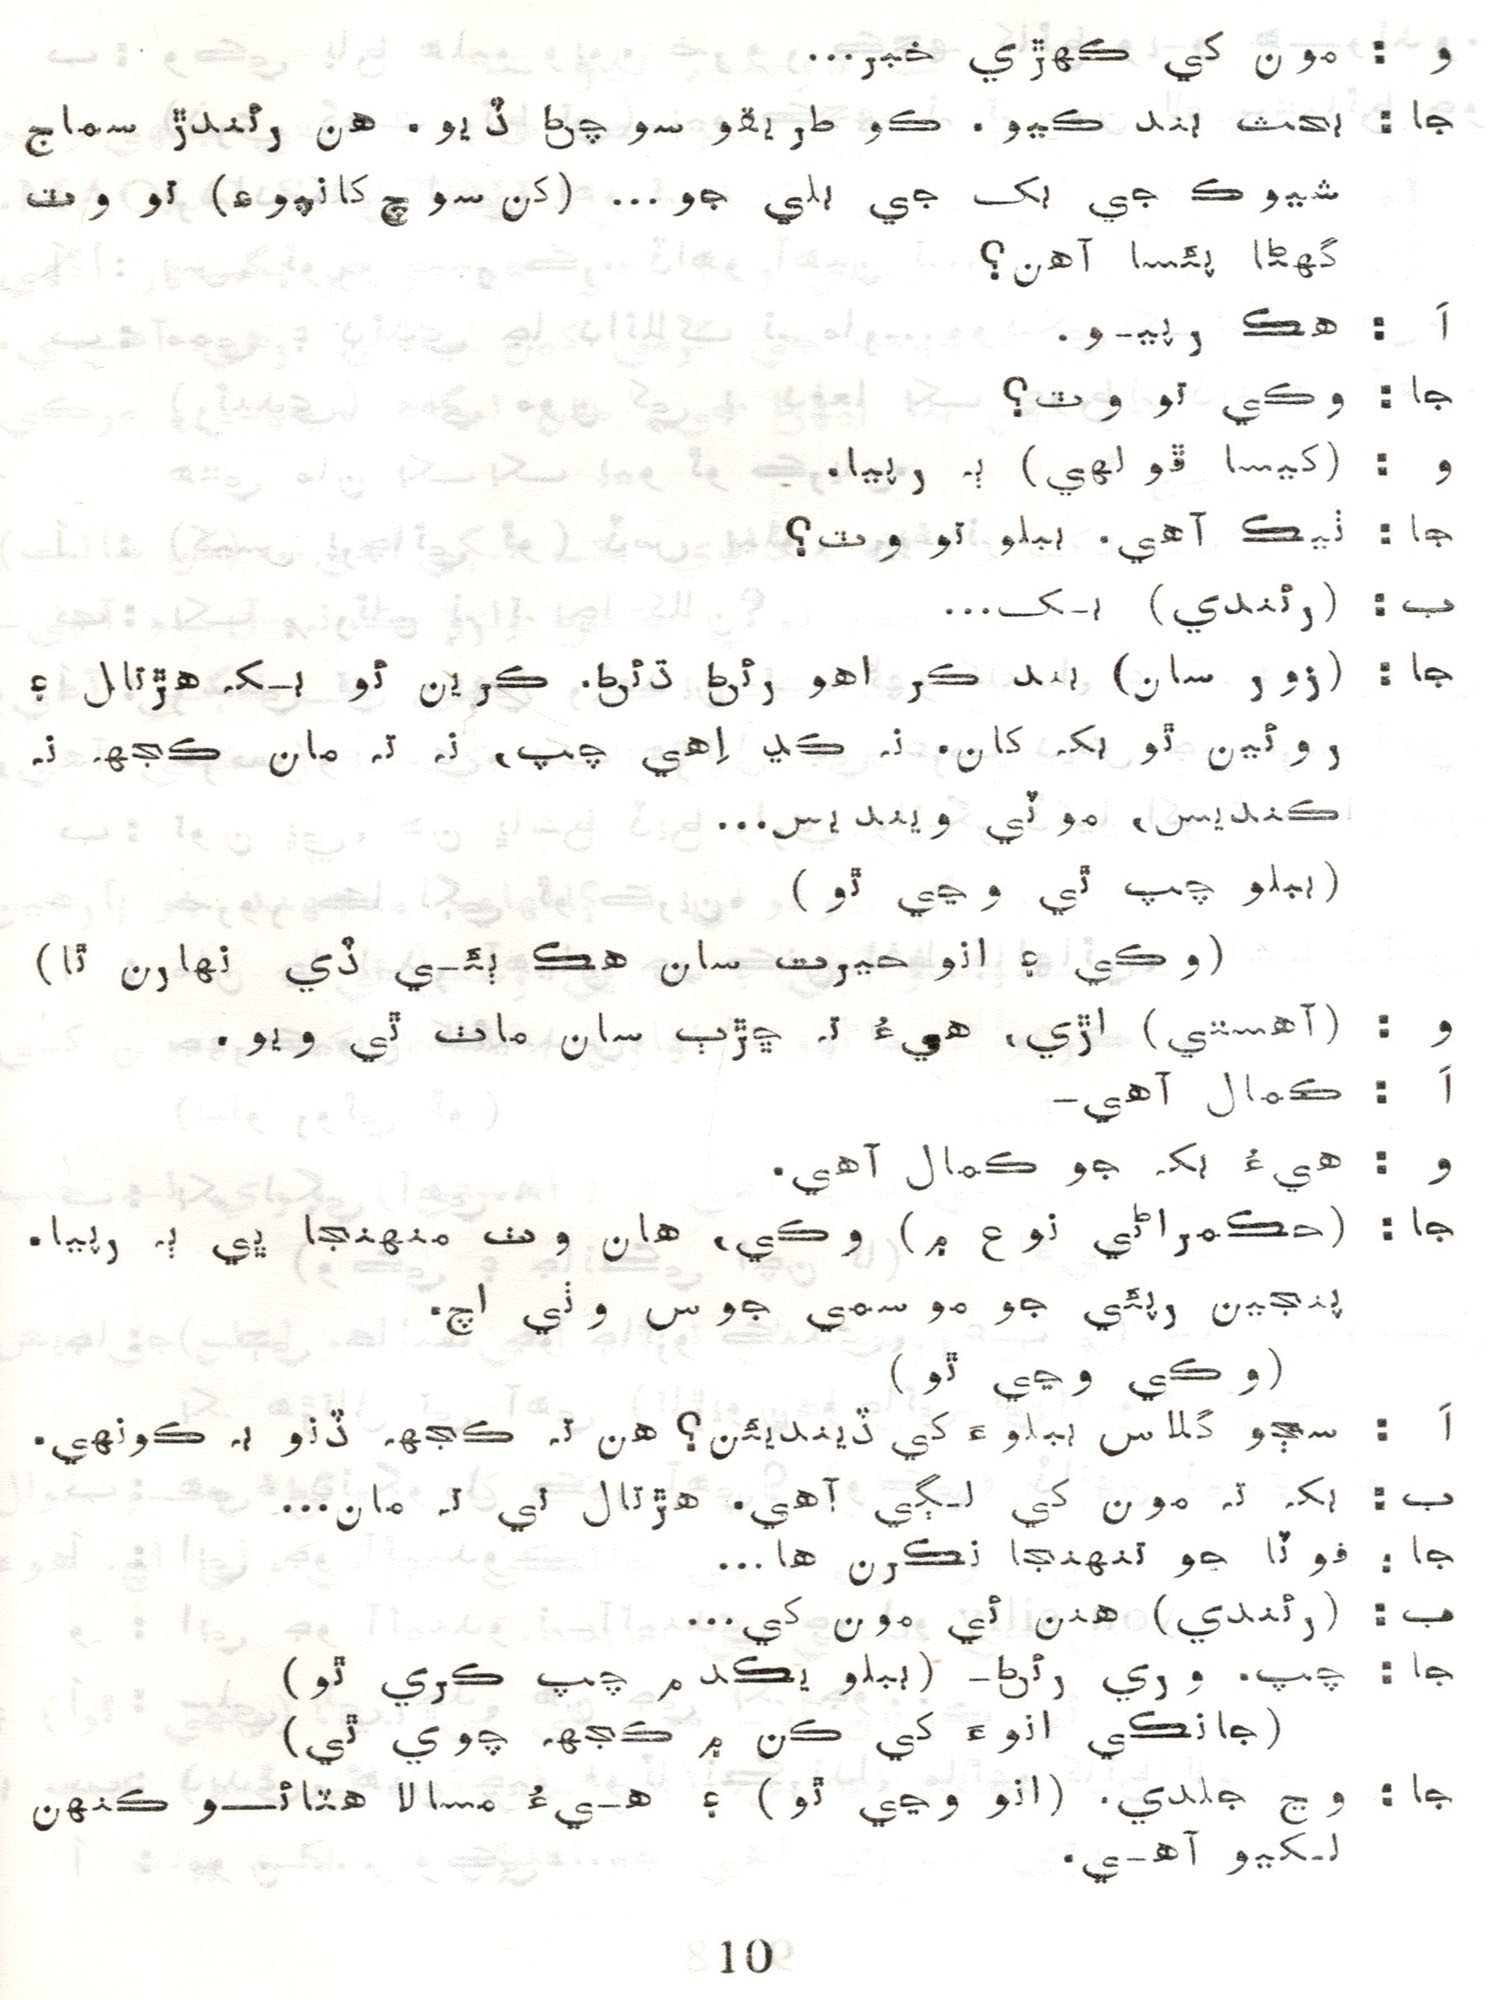 و : مون کي ڪهڙي خبر...
جا: بحث بند ڪيو. ڪو طريقو سوچڻ ڏيو. هن رئندڙ سماج
شيوڪ جي بک جي بلي جو... (کن سوچ کانپوءِ) تو وٽ
گهڻا پئسا آهن؟
اَ : هڪ رپيـو.
جا: وڪي تو وٽ؟
و : (کيسا ڦولهي) ٻه رپيا.
جا: ٺيڪ آهي. ببلو تو وٽ؟
ب: (رئندي) بـک...
جا: (زور سان) بند ڪر اهو رئڻ ڌئڻ. ڪرين ٿو بـکه هڙتال ۽
روئين ٿو بکه کان. نه ڪڍ اِهي چپ، نه ته مان ڪجهه نه
ڪنديس، موٽي وينديس...
(ببلو چپ ٿي وڃي ٿو)
(وڪي ۽ انو حيرت سان هڪ ٻئـي ڏي نهارن ٿا)
و : (آهستي) اڙي، هيءُ ته ڇڙٻ سان ماٺ ٿي ويو.
اَ : ڪمال آهي-
و : هيءُ بکه جو ڪمال آهي.
جا: (حڪمراڻي نوع ۾) وڪي، هان وٺ منهنجا ٻي ٻه رپيا.
پنجين رپئي جو موسمي جوس وٺي اچ.
(وڪي وڃي ٿو)
اَ : سڄو گلاس ببلوءَ کي ڏيندينئن؟ هن ته ڪجهه ڏنو به ڪونهي.
ب: بکه ته مون کي لـڳي آهي. هڙتال تي ته مان...
جا: فوٽا جو تنهنجا نڪرن ها...
ب: (رئندي) هنن ئي مون کي...
جا: چپ. وري رئڻ- (ببلو يڪدم چپ ڪري ٿو)
(جانڪي انوءَ کي ڪن ۾ ڪجهه چوي ٿي)
جا: وڃ جلدي. (انو وڃي ٿو) ۽ هـيءُ مسالا هٽائــو ڪنهن
لـکيو آهـي.
10